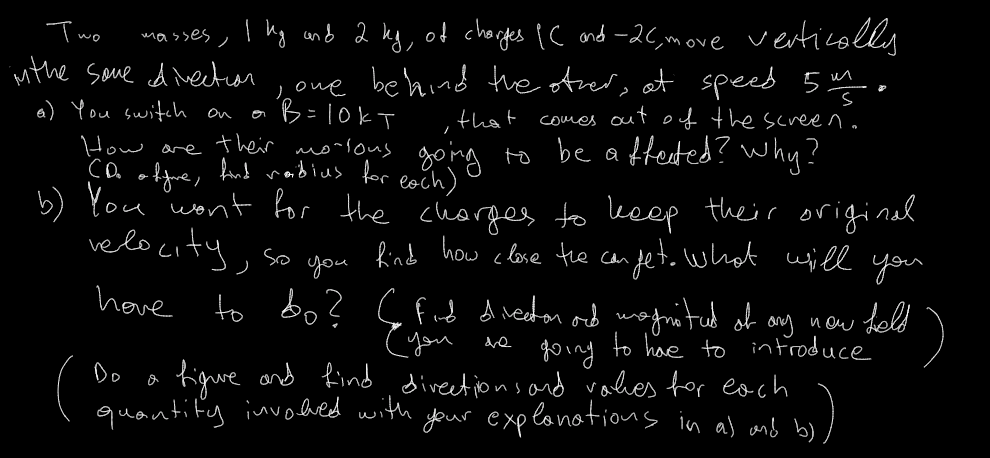 Two masses, 1 kg and 2 kg, of charges 1C and -2C, move vertically
in the same direction, one behind the other, at speed 5 m/s.
a) You switch on a B = 10 kT, that comes out of the screen.
How are their motions going to be affected? Why?
(Do a figure, find radius for each)
b) You want for the charges to keep their original
velocity, so you find how close the can get. What will you
have to do? (Find direction and magnitud of any new field
you are going to have to introduce)
(Do a figure and find directions and values for each
quantity involved with your explanations in a) and b))